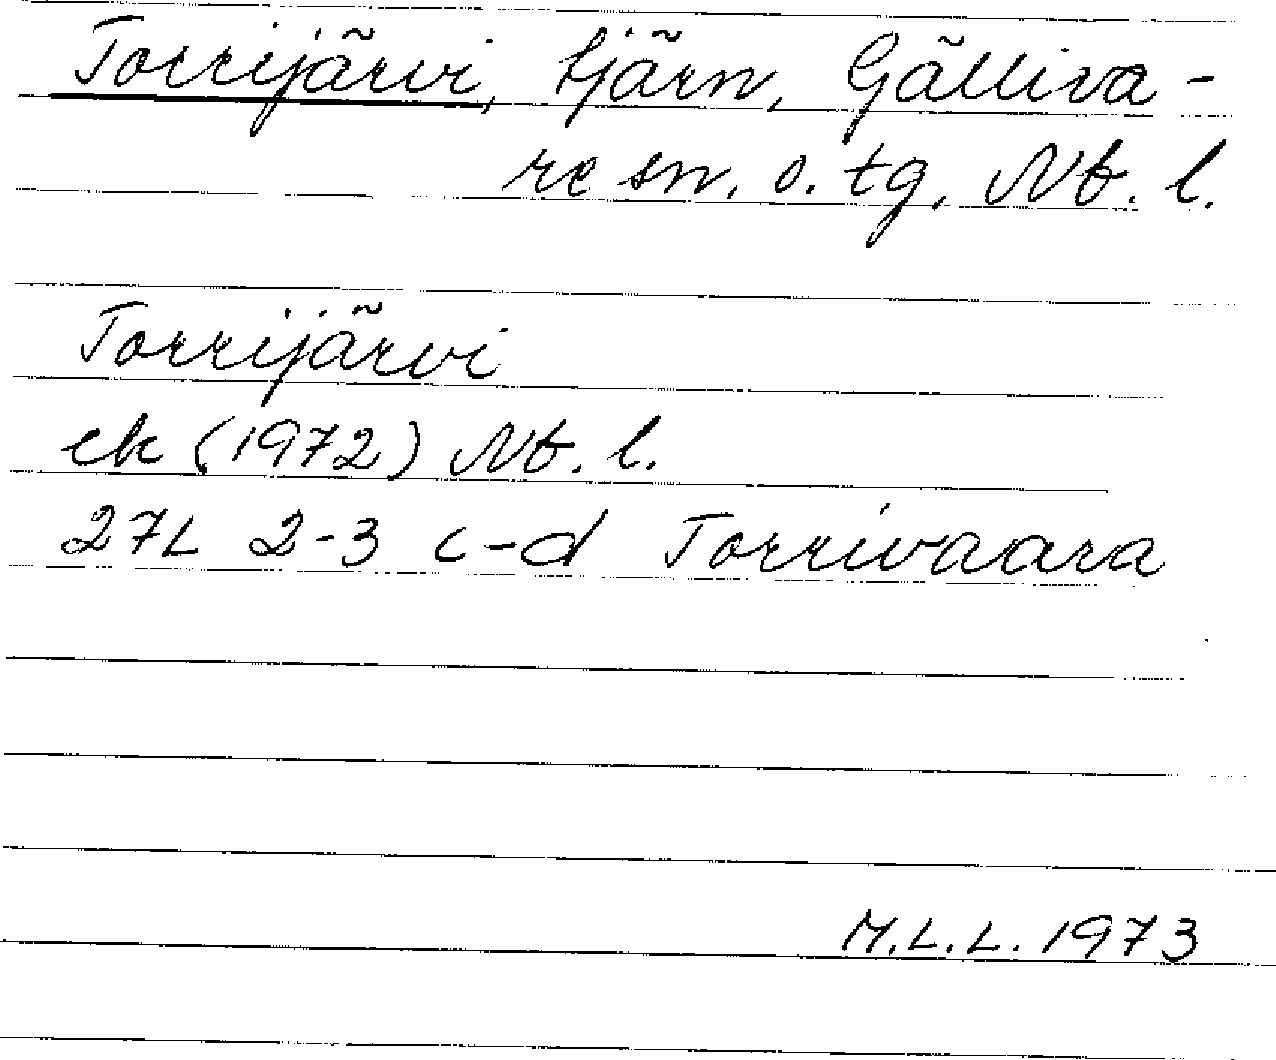 Torrijärvi, tjärn, Gälliva-
re sn. o. tg, Nb. l.
Torrijärvi
ek (1972) Nb. l.
27L 2-3 c-d Torrivaara
M.L.L. 1973